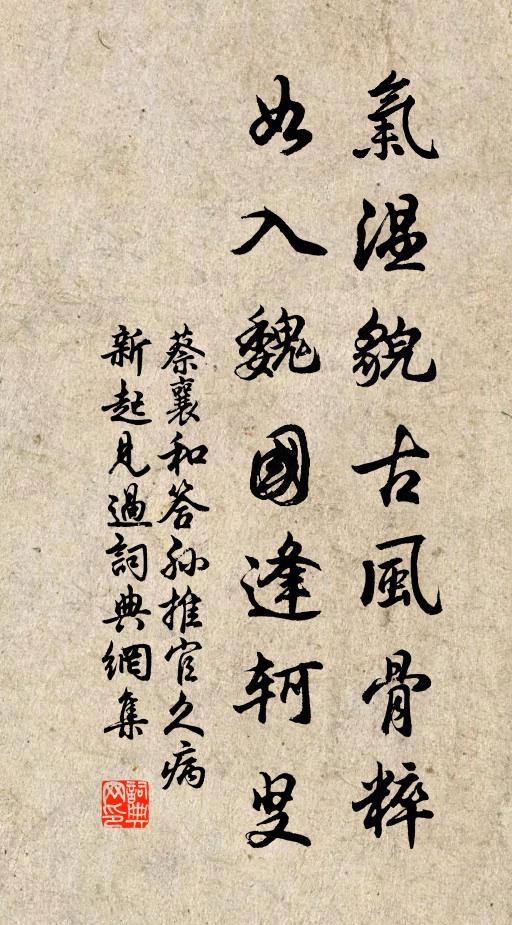 氣温貌古風骨粹
如入魏國逢軻叟
蔡襄和答孙推官久病
新起見過詞典網集
詞典
网印